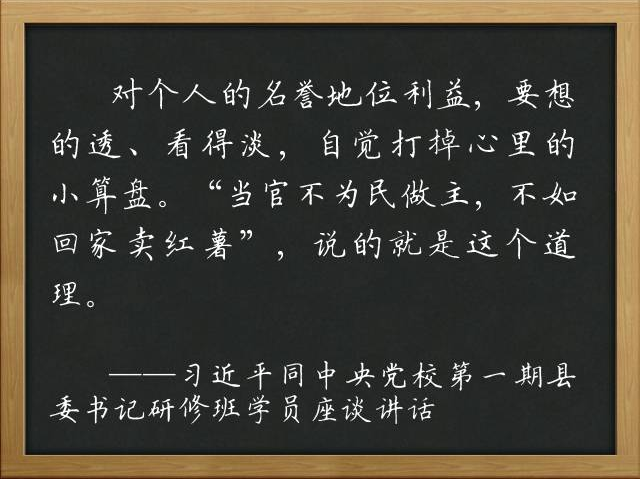 对个人的名誉地位利益，要想
的透、看得淡，自觉打掉心里的
小算盘。“当官不为民做主，不如
回家卖红薯”，说的就是这个道
理。
——习近平同中央党校第一期县
委书记研修班学员座谈讲话